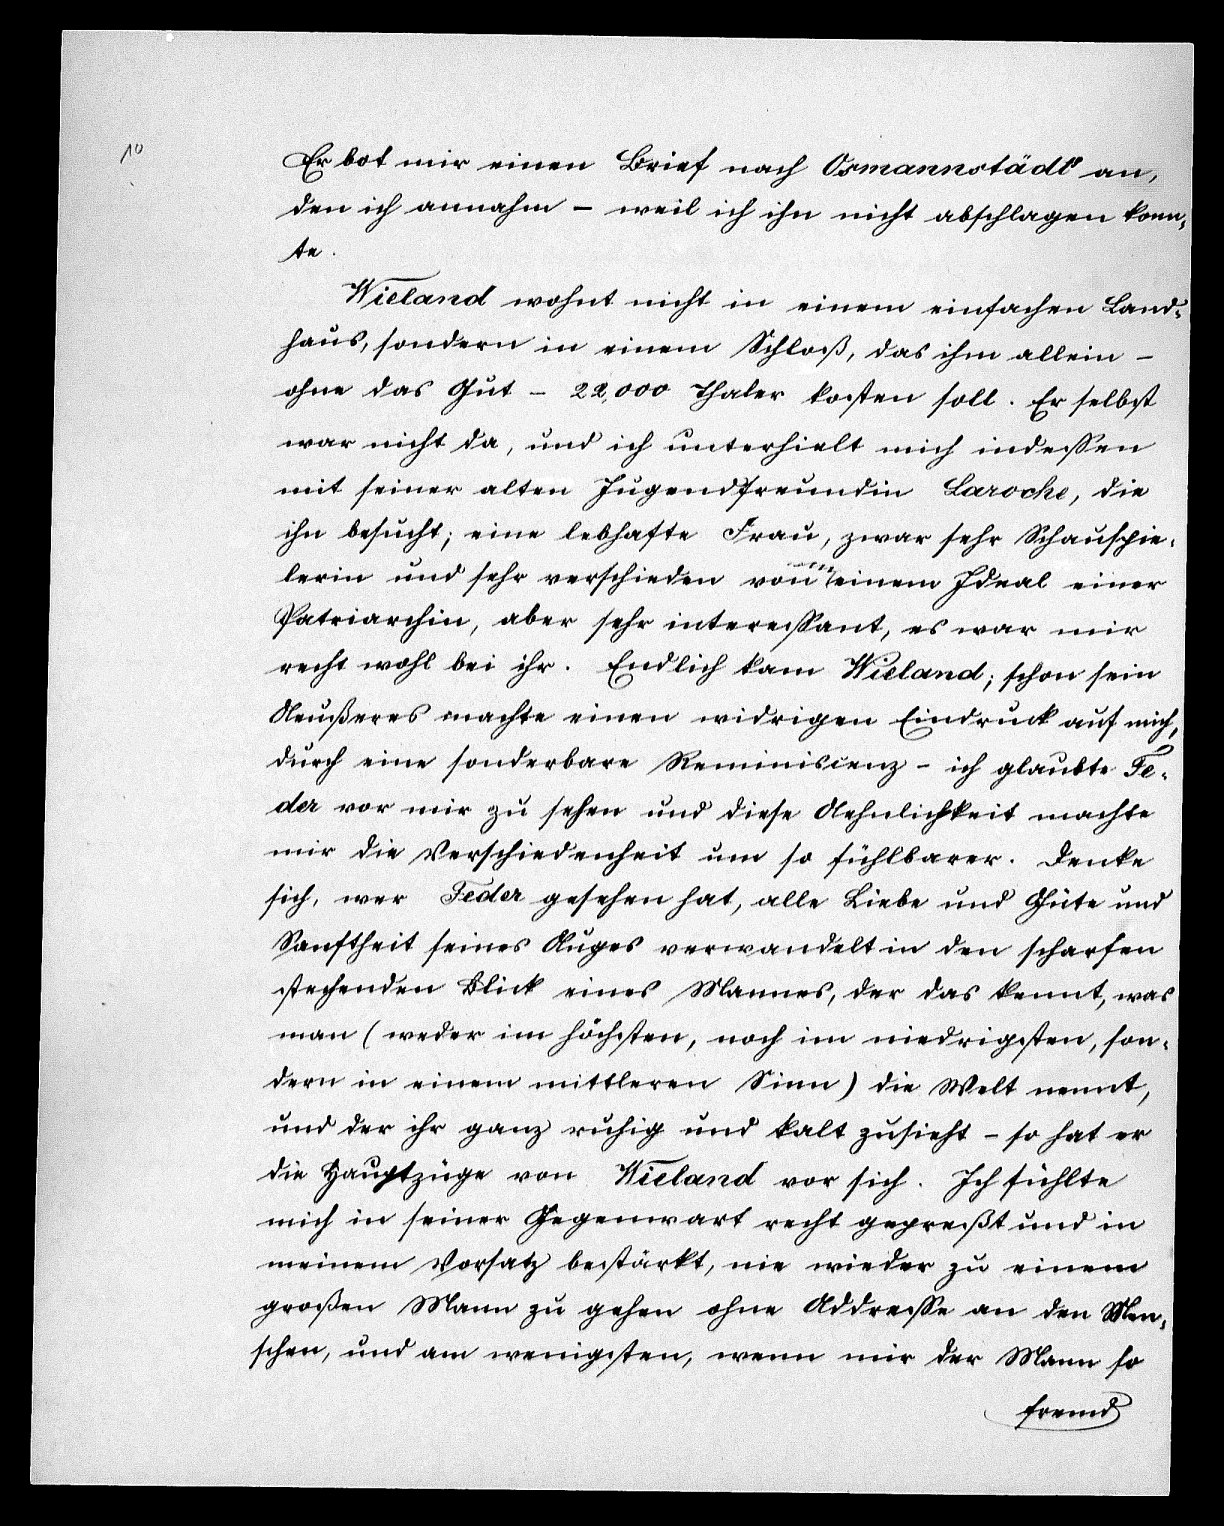 10
Er bot mir einen Brief nach Osmannstädt an,
den ich annahm – weil ich ihn nicht abschlagen konn-
te.
Wieland wohnt nicht in einem einfachen Land-
haus, sondern in einem Schloß, das ihm allein –
ohne das Gut – 22,000 Thaler kosten soll. Er selbst
war nicht da, und ich unterhielt mich indessen
mit seiner alten Jugendfreundin Laroche, die
ihn besucht; eine lebhafte Frau, zwar sehr Schauspie-
lerin und sehr verschieden von einem Ideal einer
Patriarchin, aber sehr interessant, es war mir
recht wohl bei ihr. Endlich kam Wieland; schon sein
Aeußeres machte einen widrigen Eindruck auf mich,
durch eine sonderbare Reminiscenz – ich glaubte Fe-
der vor mir zu sehen und diese Aehnlichkeit machte
mir die Verschiedenheit um so fühlbarer. Denke
sich, wer Feder gesehen hat, alle Liebe und Güte und
Sanftheit seines Auges verwandelt in den scharfen
stechenden Blick eines Mannes, der das kennt, was
man (weder im höchsten, noch im niedrigsten, son-
dern in einem mittleren Sinn) die Welt nennt,
und der ihr ganz ruhig und kalt zusieht – so hat er
die Hauptzüge von Wieland vor sich. Ich fühlte
mich in seiner Gegenwart recht gepreßt und in
meinem Vorsatz bestärkt, nie wieder zu einem
großen Mann zu gehen ohne Addresse an den Men-
schen, und am wenigsten, wenn mir der Mann so
fremd